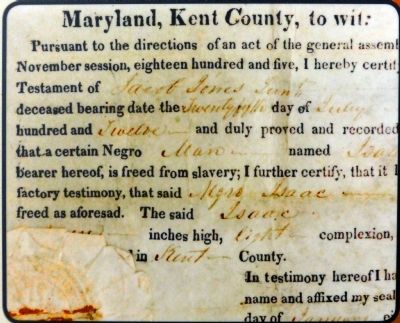 Maryland, Kent County, to wit:
Pursuant to the directions of an act of the general assemb
November session, eighteen hundred and five, I hereby certif
Testament of Jacob Jones
deceased bearing date the Twenty fifth day of July
hundred and Twelve and duly proved and recorded
that a certain Negro Man named Isaa
bearer hereof, is freed from slavery; I further certify, that it h
factory testimony, that said Negro Isaac
freed as aforesad. The said Isaac
inches high, light complexion,
in Kent County.
In testimony hereof I ha
name and affixed my seal
day of January ei